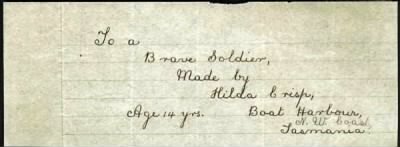 To a
Brave Soldier,
Made by
Hilda Crisp,
Age 14 yrs. Boat Harbour,
N. W. Coast
Tasmania.